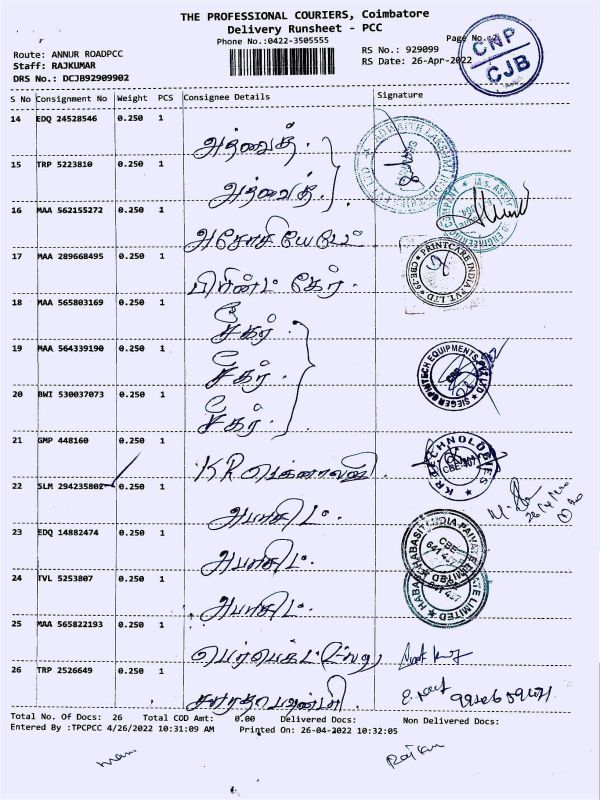 THE PROFESSIONAL COURIERS, Coimbatore
Delivery Runsheet - PCC
Phone No.:0422-3505555
Page No.
Route: ANNUR ROADPCC
RS No.: 929099
Staff: RAJKUMAR
RS Date: 26-Apr-2022
DRS No.: DCJB92909902
CNP
CJB
S No Consignment No Weight PCS Consignee Details Signature
14 EDQ 24528546 0.250 1
அத்வைத்.
15 TRP 5223810 0.250 1
அத்வைத்.
16 MAA 562155272 0.250 1
அசோசியேட்
17 MAA 289668495 0.250 1
பிரிண்ட் கேர்.
PRINTCARE INDIA PVT. LTD
18 MAA 565803169 0.250 1
சீகர்.
19 MAA 564339190 0.250 1
சீகர்.
20 BWI 530037073 0.250 1
சீகர்.
21 GMP 448160 0.250 1
KR டெக்னாலஜி.
KR TECHNOLOGIES
22 SLM 294235802 0.250 1
அபாசிட்.
23 EDQ 14882474 0.250 1
அபாசிட்.
HABASIT INDIA PRIVATE LIMITED
24 TVL 5253807 0.250 1
அபாசிட்.
25 MAA 565822193 0.250 1
26 TRP 2526649 0.250 1
Total No. Of Docs: 26 Total COD Amt: 0.00 Delivered Docs: Non Delivered Docs:
Entered By :TPCPCC 4/26/2022 10:31:09 AM Printed On: 26-04-2022 10:32:05